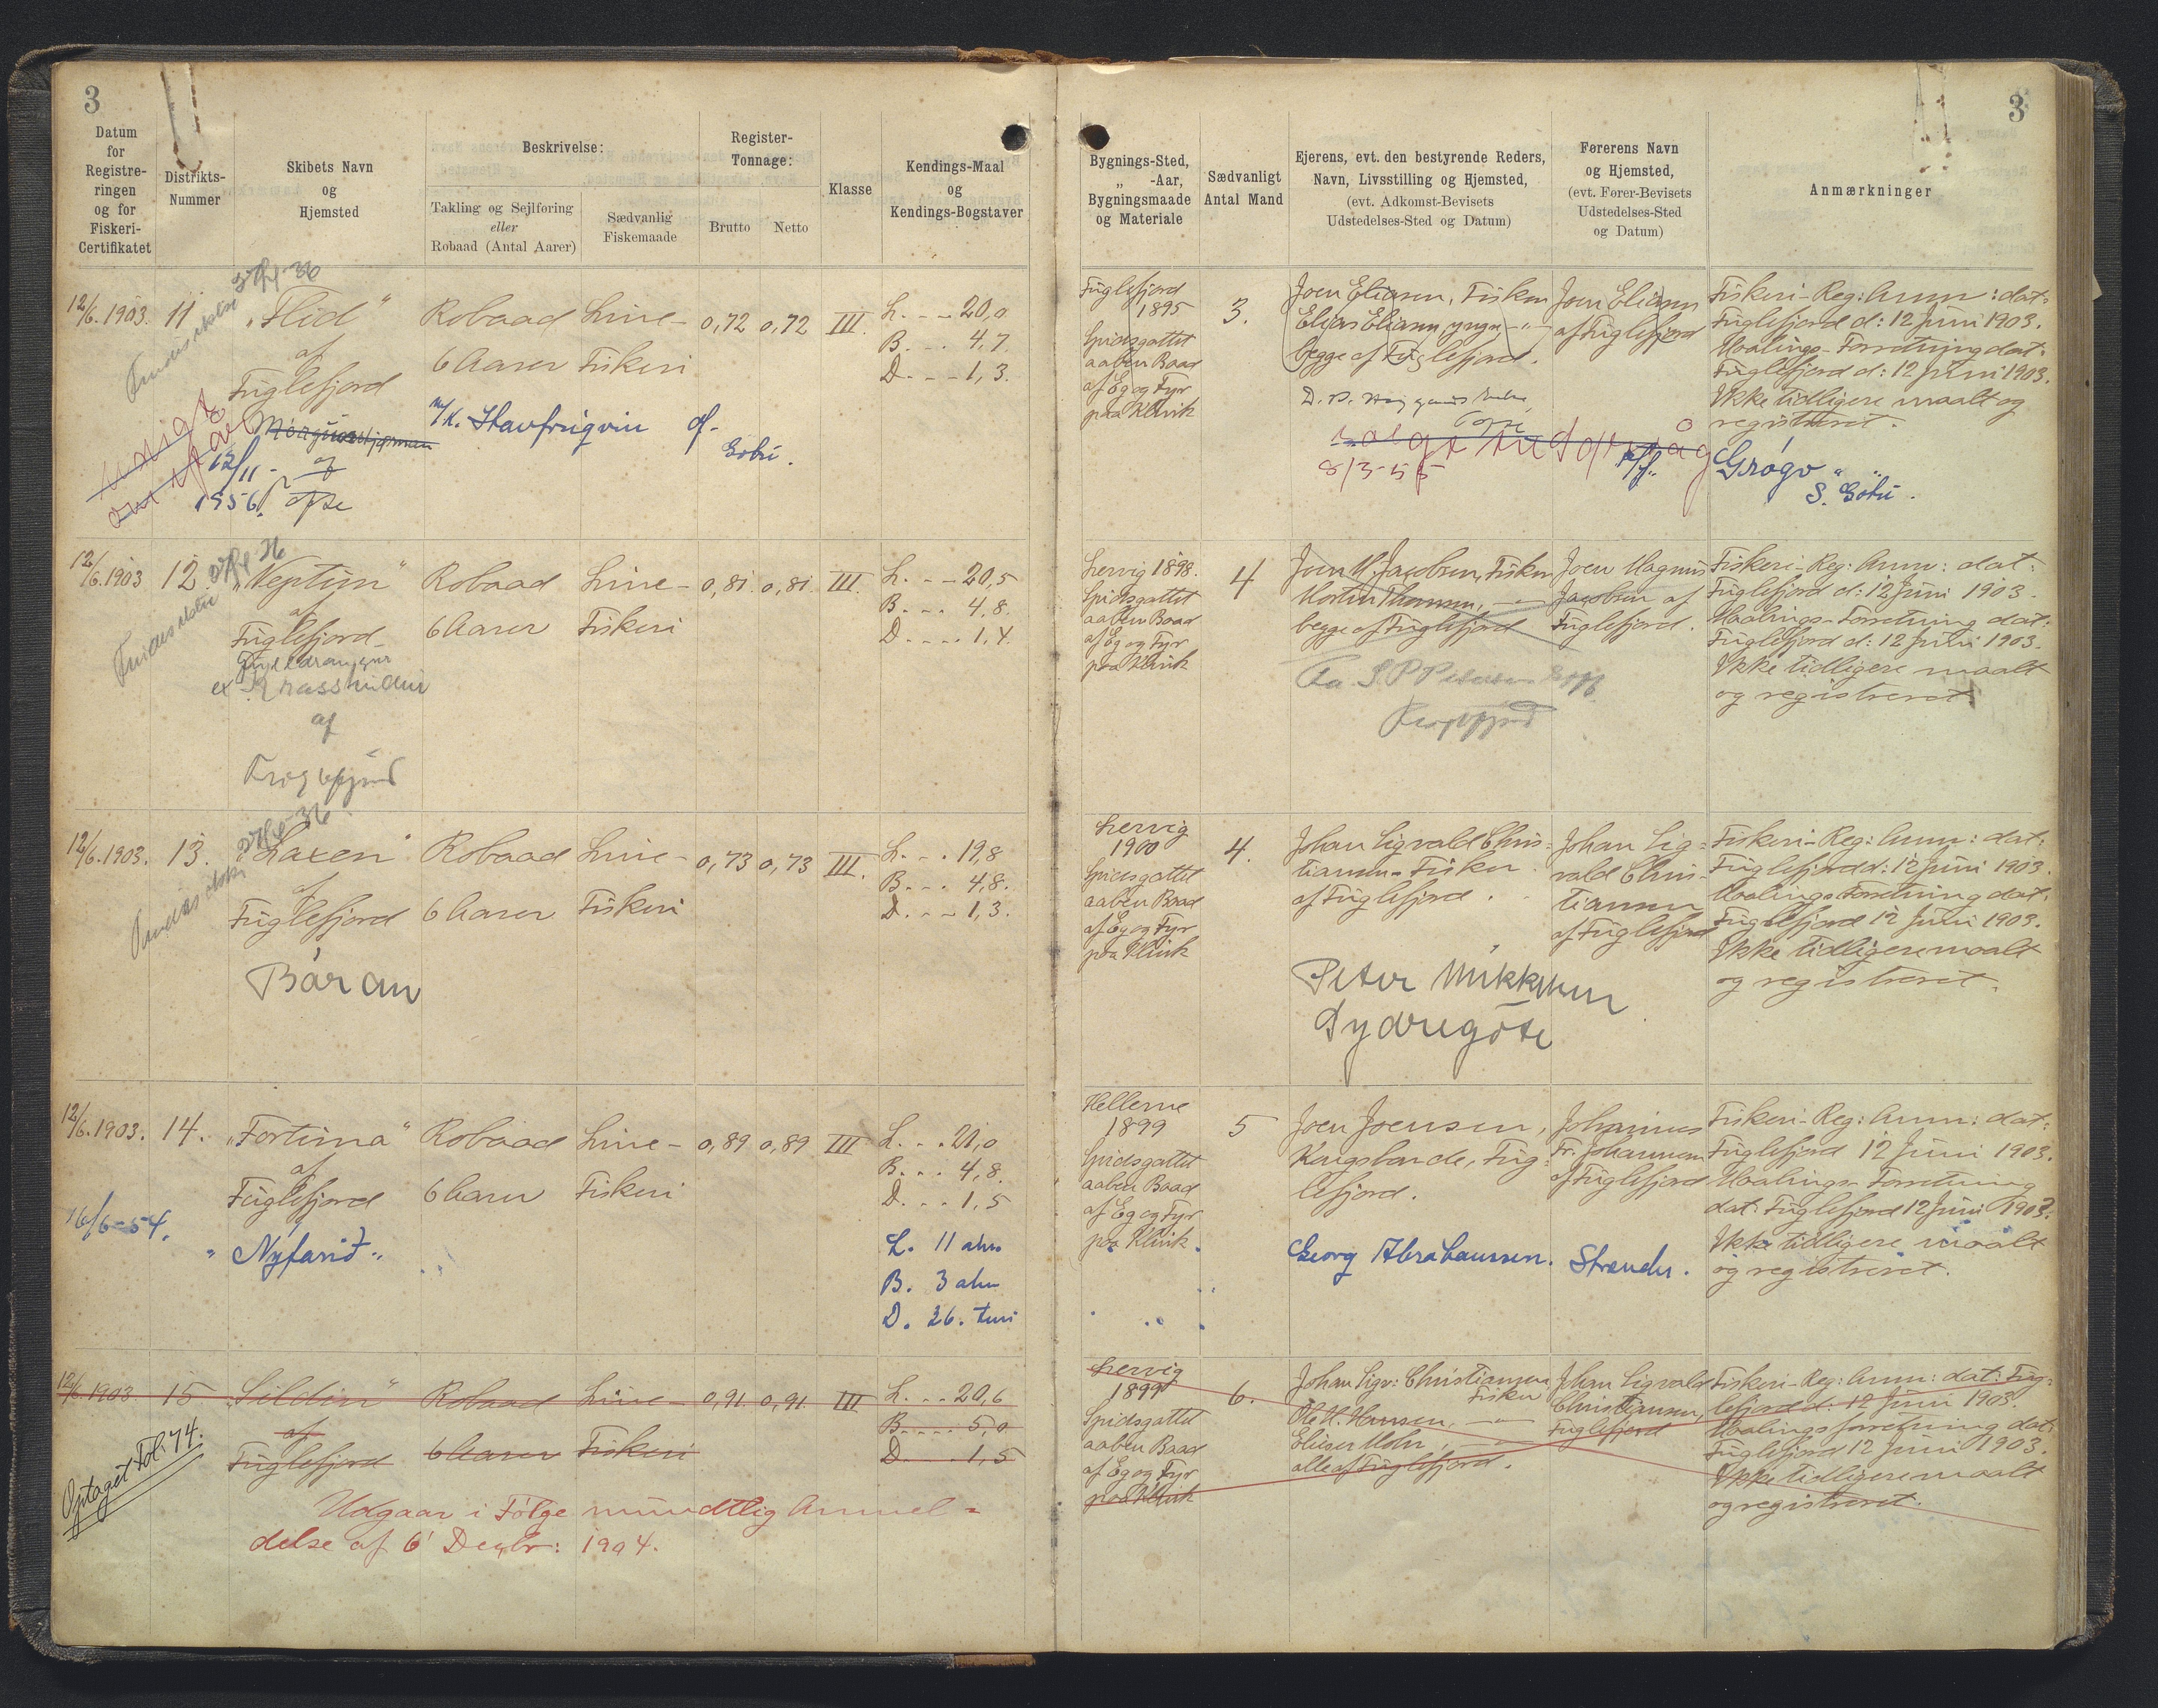 3
Datum
for
Registre-
ringen
og for
Fiskeri-
Certifikatet
Distrikts-
Nummer
Skibets Navn
og
Hjemsted
Beskrivelse:
Takling og Sejlføring
eller
Robaad (Antal Aarer)
Sædvanlig
Fiskemaade
Register-
Tonnage:
Brutto Netto
Klasse
Kendings-Maal
og
Kendings-Bogstaver
12/6.1903. 11 "Flid" Robaad Line- 0,72 0,72 III. L. - - 20,0
af 6 Aarer Fiskeri B. - - 4,7.
Fuglefjord D. - - 1,3.
12/11-
1956. af
m/k. Havfrugvin af
Gøtu.
12/6.1903 12 "Neptun" Robaad Line- 0,81. 0,81. III. L. - - 20,5
af 6 Aarer Fiskeri B. - - 4,8.
Fuglefjord D. - - - 1,4.
ex
af
12/6.1903. 13. "Laxen" Robaad Line- 0,73 0,73 III. L. - . 19,8
af B. - - 4,8.
Fuglefjord 6 Aarer Fiskeri D. - - 1,3.
Báran
12/6.1903. 14. "Fortuna" Robaad Line- 0,89 0,89 III L. - . 21,0
af B. . . 4,8.
Fuglefjord 6 Aarer Fiskeri D. . . 1,5
16/6-54. "Nýfarið" L. 11 aln
B. 3 aln
D. 26. tm
12/6.1903 15 "Sildin" Robaad Line- 0,91. 0,91. III L. . . 20,6
af B. . . . 5,0
Fuglefjord 6 Aarer Fiskeri D. . . . 1,5
Optaget Fol. 74.
Udgaar i Følge mundtlig Anmel=
delse af 6' Decbr: 1904.
3
Bygnings-Sted,
„ -Aar,
Bygningsmaade
og Materiale
Sædvanligt
Antal Mand
Ejerens, evt. den bestyrende Reders,
Navn, Livsstilling og Hjemsted,
(evt. Adkomst-Bevisets
Udstedelses-Sted og Datum)
Førerens Navn
og Hjemsted,
(evt. Fører-Bevisets
Udstedelses-Sted
og Datum)
Anmærkninger
Fuglefjord
1895
Spidsgattet
aaben Baad
af Eg og Fyr
paa Klink
3.
Joen Eliasen, Fisker
Elias Eliasen, yngre -"-
begge af Fuglefjord.
8/3-55
Joen Eliasen
af Fuglefjord
Fiskeri-Reg: Anm: dat:
Fuglefjord d: 12 Juni 1903.
Maalings-Forretning dat:
Fuglefjord d: 12 Juni 1903.
Ikke tidligere maalt og
registreret.
S. Gøtu.
Lervig 1898.
Spidsgattet
aaben Baad
af Eg og Fyr
paa Klink
4
Joen M. Jacobsen, Fisker
Morten Thomsen, -"-
begge af Fuglefjord
Joen Magnus
Jacobsen af
Fuglefjord.
Fiskeri-Reg: Anm: dat:
Fuglefjord d: 12 Juni 1903.
Maalings-Forretning dat:
Fuglefjord d: 12 Juni 1903.
Ikke tidligere maalt
og registreret.
Lervig
1900
Spidsgattet
aaben Baad
af Eg og Fyr
paa Klink
4.
Johan Sigvald Chris=
tiansen - Fisker
af Fuglefjord.
Peter Mikkelsen
Sydregøte
Johan Sig=
vald Chris-
tiansen
af Fuglefjord
Fiskeri-Reg: Anm: dat:
Fuglefjord d: 12 Juni 1903.
Maalings-Forretning dat:
Fuglefjord 12 Juni 1903.
Ikke tidligere maalt
og registreret.
Hellerne
1899
Spidsgattet
aaben Baad
af Eg og Fyr
paa Klink.
5
Joen Joensen,
Kongsbonde, Fug=
lefjord.
Georg Abrahamsen. Strender.
Johannes
Fr. Johannesen
af Fuglefjord
Fiskeri-Reg: Anm: dat:
Fuglefjord 12 Juni 1903.
Maalings-Forretning
dat: Fuglefjord 12 Juni 1903.
Ikke tidligere maalt
og registreret.
Lervig
1899
Spidsgattet
aaben Baad
af Eg og Fyr
paa Klink
6.
Johan Sigv: Christiansen
Fisker
Ole H. Hansen, -"-
Elieser Mohr, -"-
alle af Fuglefjord.
Johan Sigvald
Christiansen,
Fuglefjord
Fiskeri-Reg: Anm: dat: Fug=
lefjord d: 12 Juni 1903.
Maalingsforretning dat:
Fuglefjord 12 Juni 1903.
Ikke tidligere maalt
og registreret.